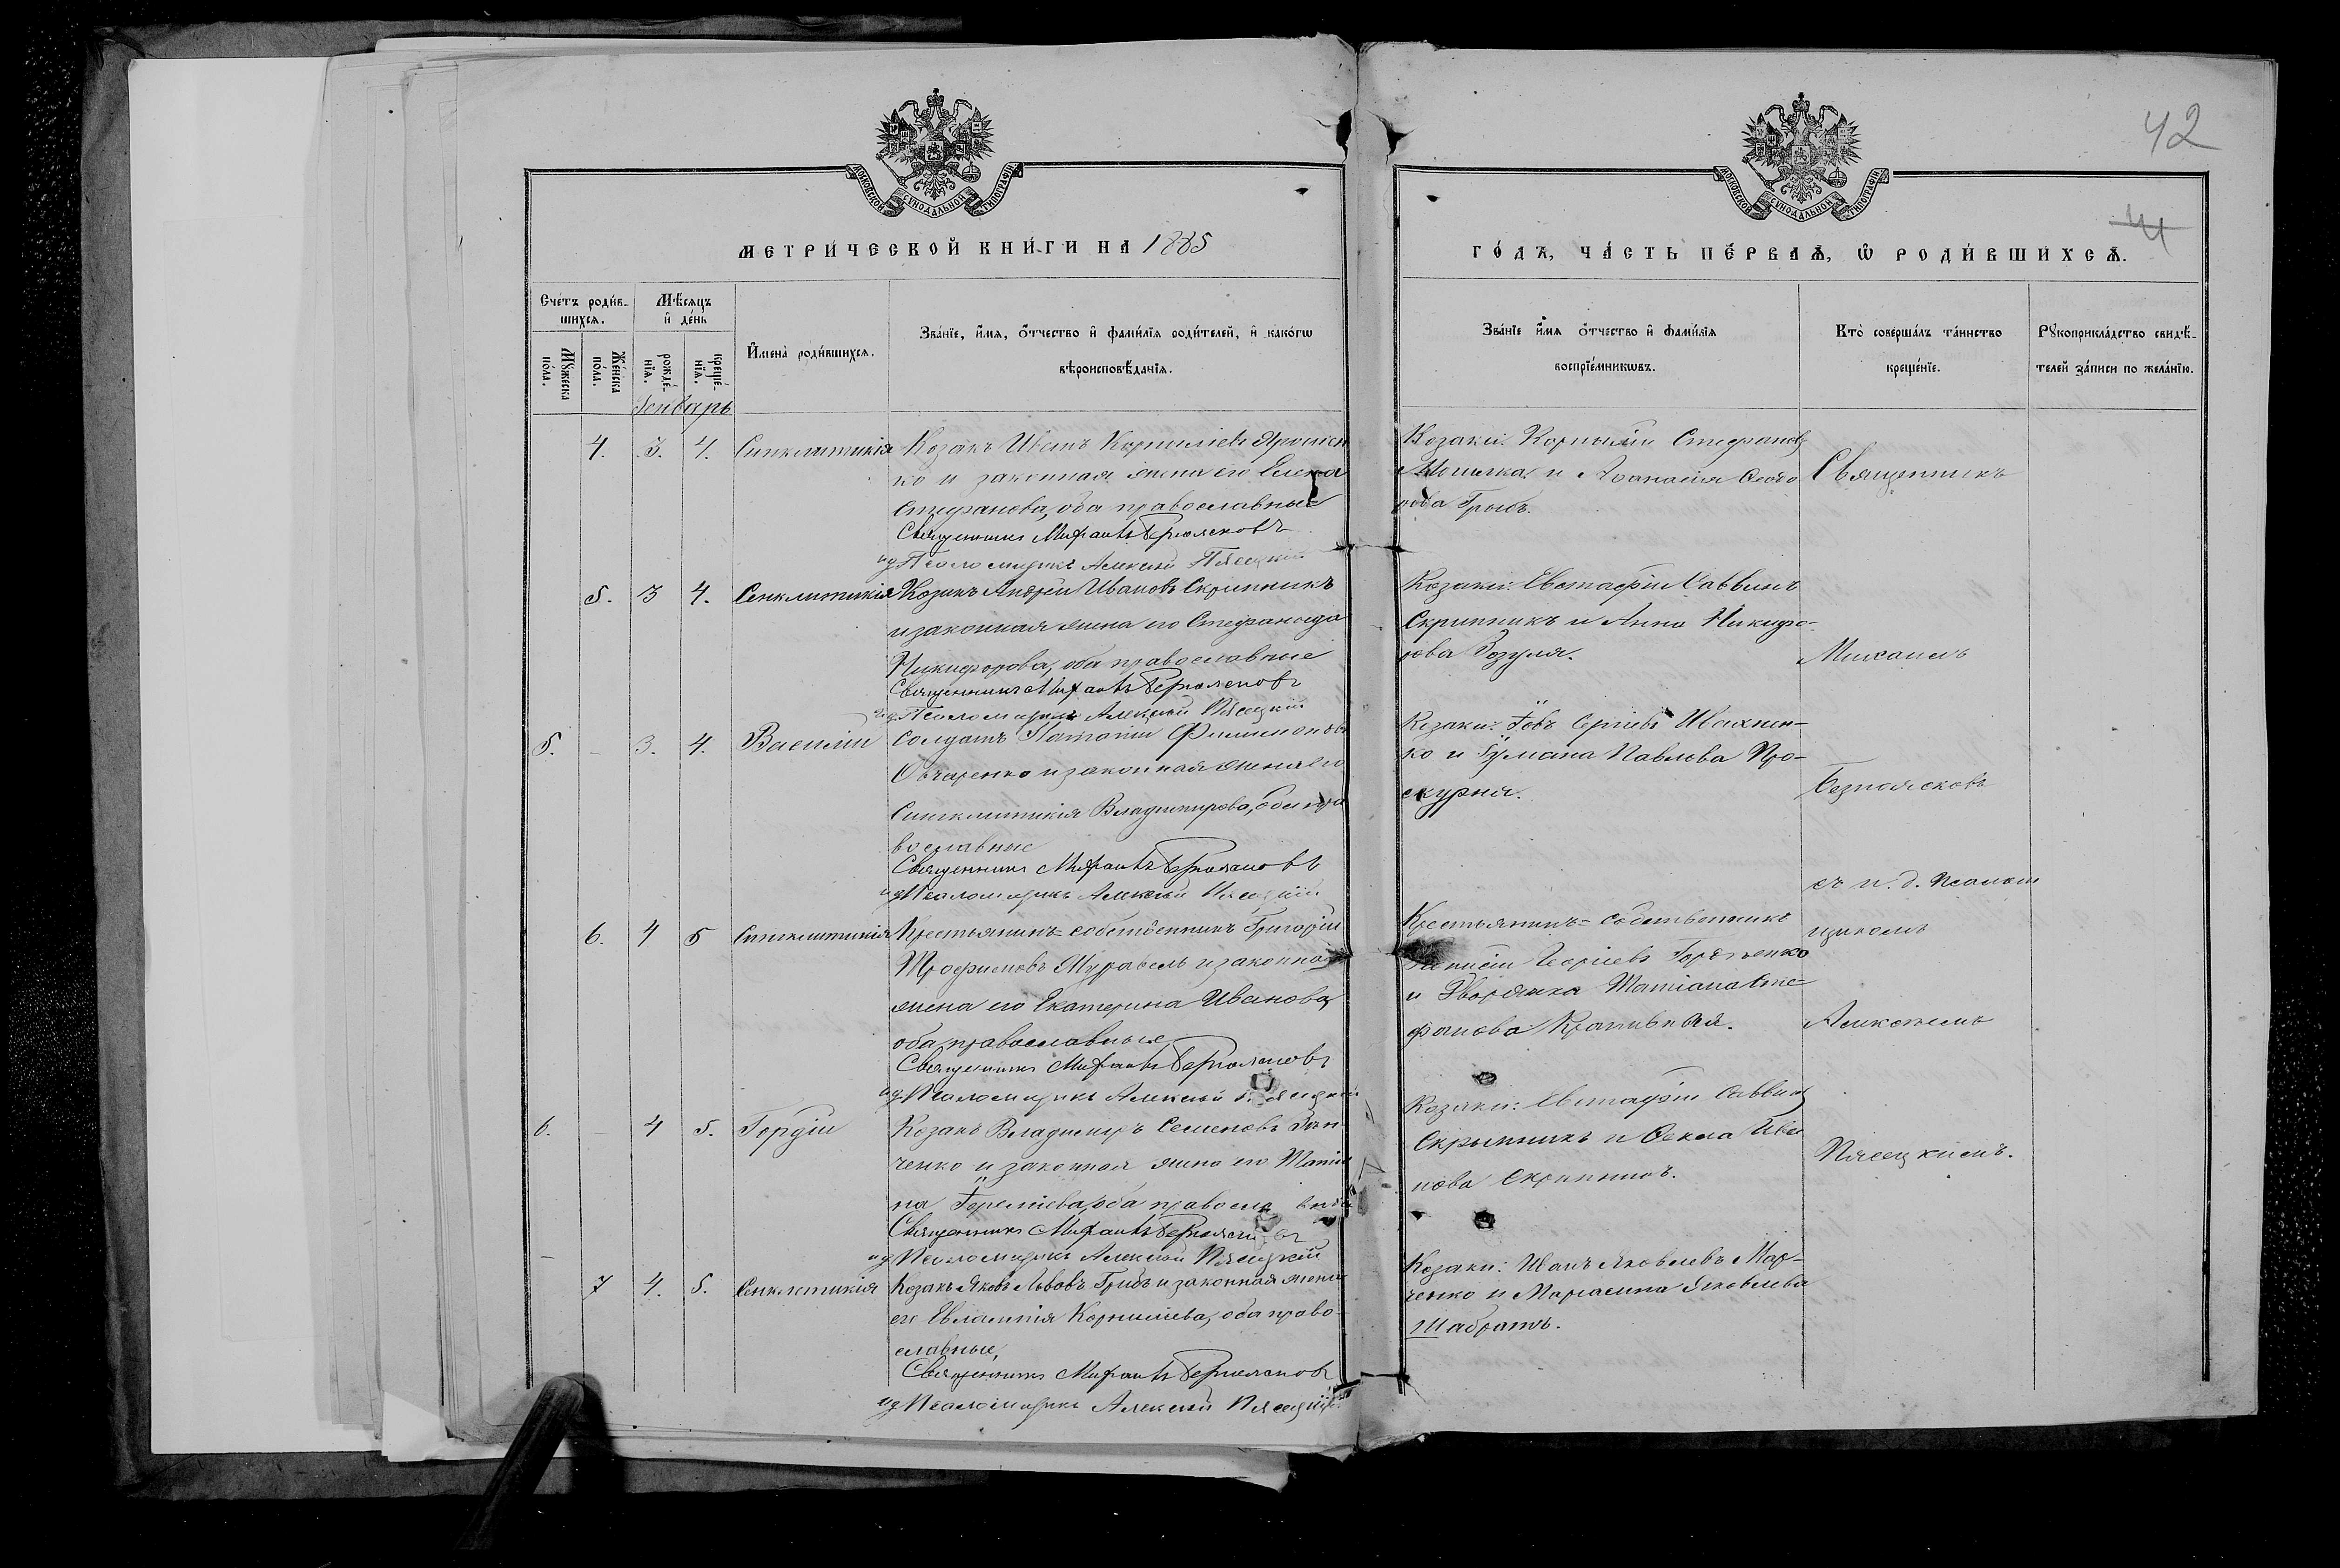 42
МОСКОВСКОЙ СУНОДАЛЬНОЙ ТИПОГРАФІИ
МОСКОВСКОЙ СУНОДАЛЬНОЙ ТИПОГРАФІИ
МЕТРИ́ЧЕСКОЙ КНИ́ГИ НА 1885
ГО́ДЪ, ЧА́СТЬ ПЕ́РВАѦ, Ѡ РОДИ́ВШИХСѦ.
Сче́тъ роди́в-
шихсѧ.
Мꙋжеска по́ла.
Же́нска по́ла.
Мѣ́сѧцъ и де́нь
рожде́-
нїѧ.
креще́-
нїѧ.
Генварь
Имена̀ роди́вшихсѧ.
Зва́нїе, и́мѧ, о́тчество и фами́лїѧ роди́телей, и како́гѡ
вѣроисповѣ́данїѧ.
Зва́нїе и́мѧ о́тчество и фами́лїѧ
воспрїе́мникѡвъ.
Кто̀ соверша́лъ та́инство
креще́нїе.
Рꙋкоприкла́дство свидѣ́-
телей за́писи по жела́нїю.
4. 3. 4. Синклитикія Козакъ Иванъ Корниліевъ Ярошен
ко и законная жена его Елена
Стефанова, оба православные
Священникъ Михаилъ Безпоясковъ
ид Псаломщикъ Алексѣй Пясецкій
Козаки: Корнилій Стефановъ
и Аѳанасія Ѳеодо
рова Грибъ.
Священникъ
5. 3 4. Сенклитикія Козакъ Андрей Ивановъ Скрипникъ
и законная жена его Стефанида
Никифорова, оба православные
Священникъ Михаилъ Безпоясковъ
ид Псаломщикъ Алексѣй Пясецкій
Козаки: Евстафій Саввинъ
Скрипникъ и Анна Никифо-
рова Зозуля.
Михаилъ
5. – 3. 4. Василій Солдатъ Потапій Филимоновъ
Овчаренко и законная жена его
Синклитикія Владимирова, оба пра
вославные
Священникъ Михаилъ Безпоясковъ
ид Псаломщикъ Алексѣй Пясецкій
Козаки: Іовъ Сергіевъ Шахнен-
ко и Іуліана Павлова Про-
скурня.
Безпоясковъ
съ и. д. псалом
щикомъ
6. 4 5 Синклитикія Крестьянинъ-собственникъ Григорій
Трофимовъ Журавель и законная
жена его Екатерина Иванова,
оба православные
Священникъ Михаилъ Безпоясковъ
ид Псаломщикъ Алексѣй Пясецкій
Крестьянинъ-собственникъ
Георгіевъ
и Дворянка Татіана Сте-
фанова Кропивная.
Алексѣемъ
6. – 4 5. Гордій Козакъ Владимиръ Семеновъ
ченко и законная жена его Татіа
на Іереміева, оба правосла вные
Священникъ Михаилъ Безпоясковъ
ид Псаломщикъ Алексѣй Пясецкій
Козаки: Евстафій Саввинъ
Скрыпникъ и Ѳекла Ива
нова Скрипникъ.
Пясецкимъ.
7 4. 5. Сенклитикія Козакъ Яковъ Львовъ Грибъ и законная жена
его Евлампія Корниліева, оба право
славные,
Священникъ Михаилъ Безпоясковъ
ид Псаломщикъ Алексѣй Пясецкій
Козаки: Иванъ Яковлевъ Мар-
ченко и Маріамна Яковлева
Шабратъ.